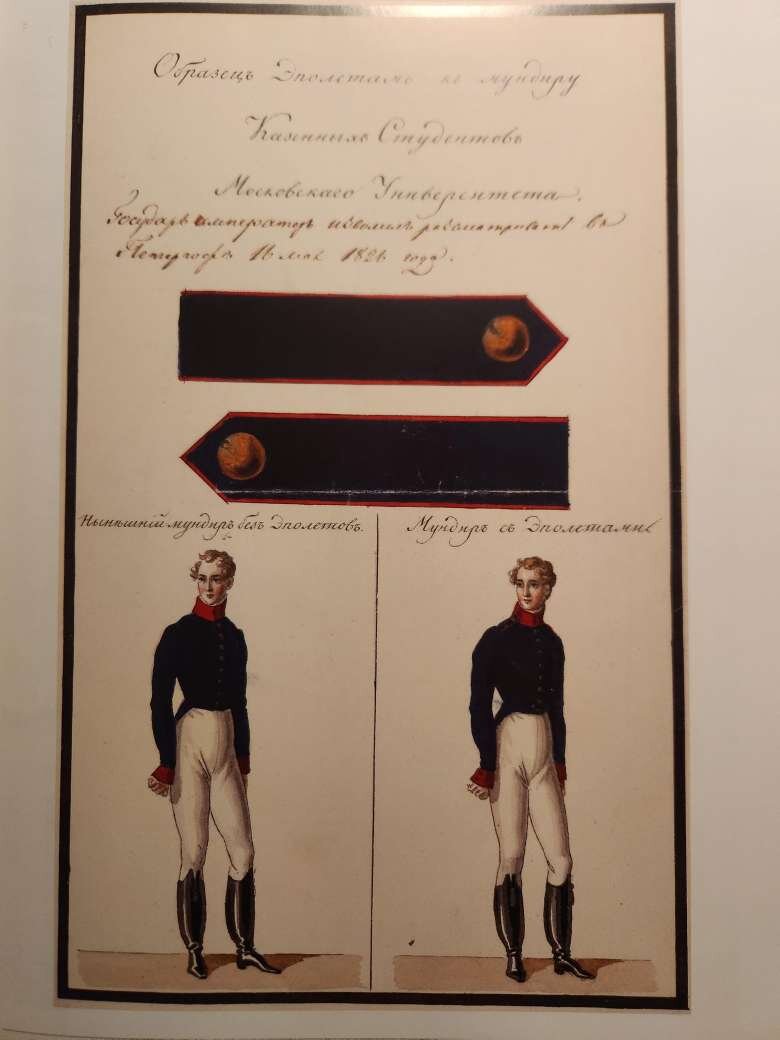 Образецъ Эполетамъ къ мундиру
Казенныхъ Студентовъ
Московскаго Университета.
Государь императоръ изволилъ разсматривать въ
Петергофѣ 16 мая года.
Нынѣшній мундиръ безъ Эполетовъ.
Мундиръ съ Эполетами